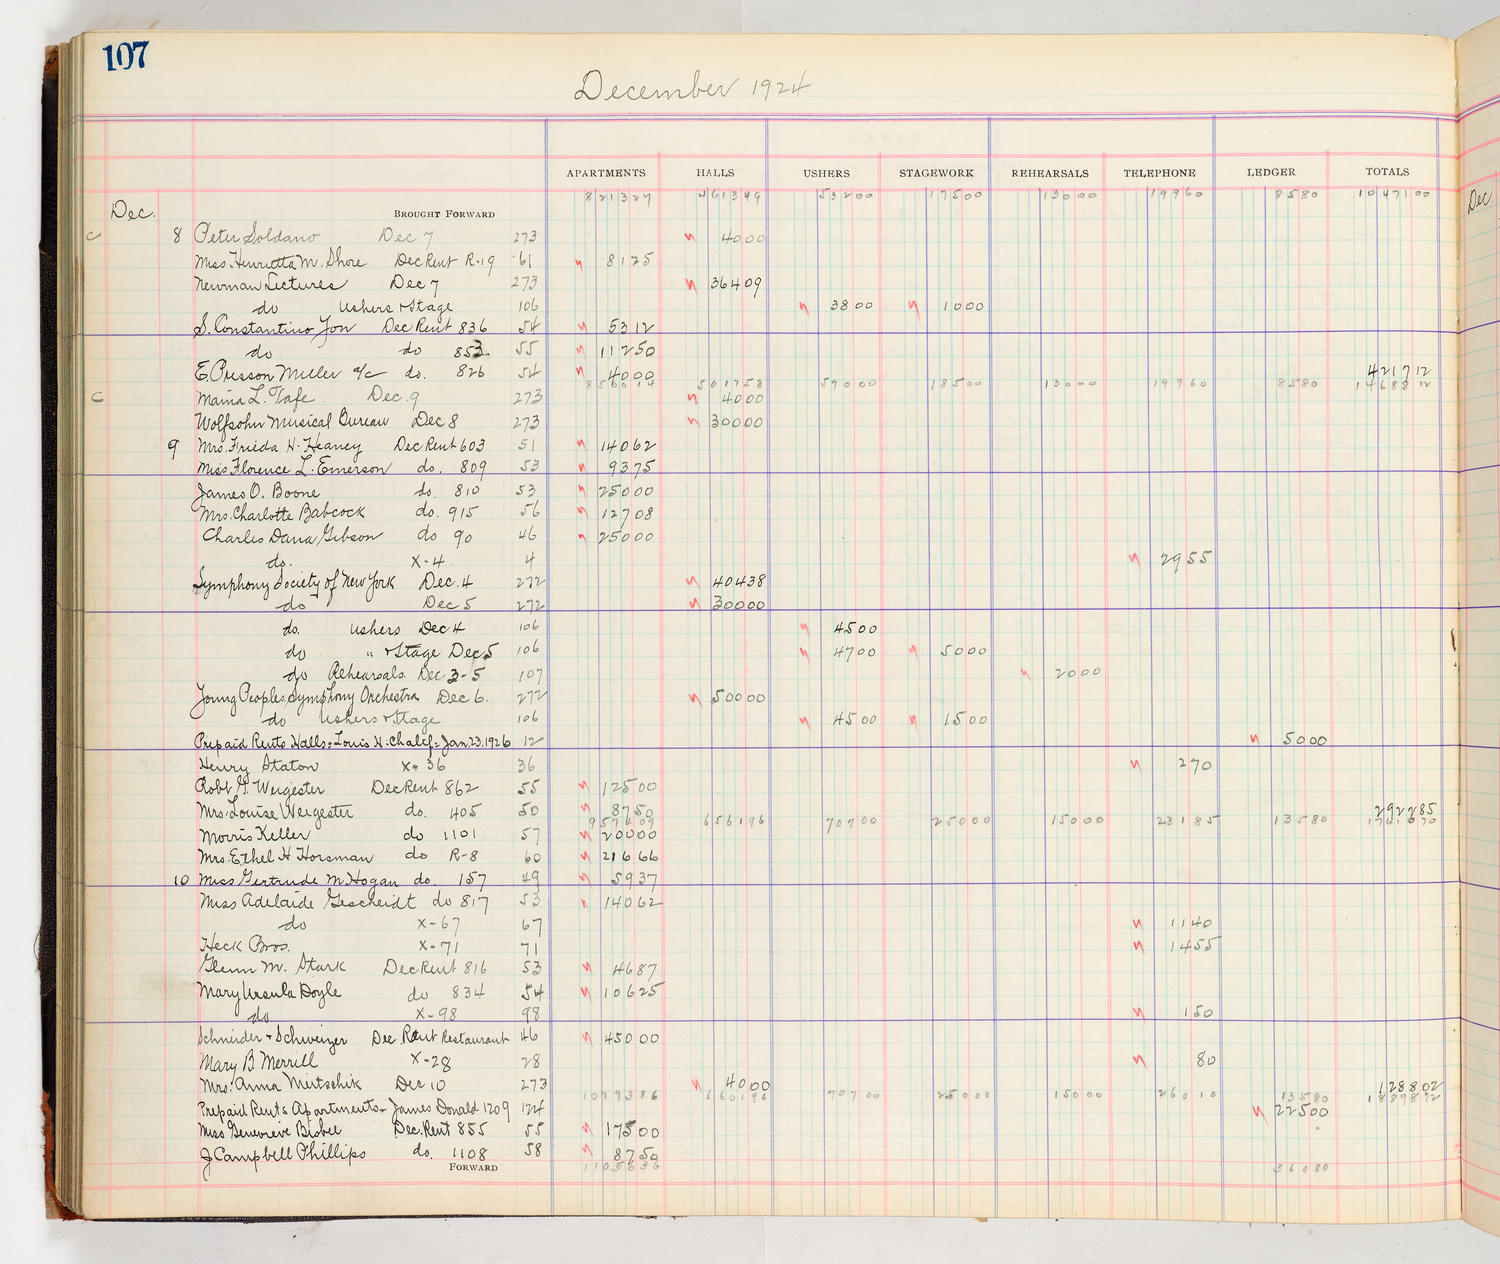 107
December 1924
APARTMENTS HALLS USHERS STAGEWORK REHEARSALS TELEPHONE LEDGER TOTALS
821327 461349 53200 17500 13000 19960 8580 1047100
Dec. BROUGHT FORWARD Dec.
c 8 Peter Soldano Dec 7 273 4000
Miss Henrietta M. Shore Dec Rent R-19 61 8125
Newman Lectures Dec 7 273 36409
do Ushers + Stage 106 3800 1000
S. Constantino Yon Dec Rent 836 54 5312
do do 853 55 11250
E. Presson Miller a/c do. 826 54 4000 421712
856014 501758 57000 18500 13000 19960 8580 1468812
c Maina L. Tafe Dec. 9 273 4000
Wolfsohn Musical Bureau Dec 8 273 30000
9 Mrs. Frieda H. Heaney Dec Rent 603 51 14062
Miss Florence L. Emerson do. 809 53 9375
James O. Boone do. 810 53 25000
Mrs. Charlotte Babcock do. 915 56 12708
Charles Dana Gibson do 90 46 25000
do. X-4 4 2955
Symphony Society of New York Dec. 4 272 40438
do Dec 5 272 30000
do. Ushers Dec 4 106 4500
do " + Stage Dec 5 106 4700 5000
do Rehearsals. Dec 3-5 107 2000
Young Peoples Symphony Orchestra Dec 6. 272 50000
do Ushers + Stage 106 4500 1500
Prepaid Rents Halls - Louis H. Chalif - Jan. 23, 1926 12 5000
Henry Staton X-36 36 270
Robt G. Weigester Dec Rent 862 55 12500
Mrs. Louise Weigester do. 405 50 8750 292285
957409 656196 70700 25000 15000 23185 13580
Morris Keller do 1101 57 20000
Mrs. Ethel H Horsman do R-8 60 21666
10 Miss Gertrude M. Hogan do. 157 49 5937
Miss Adelaide Gescheidt do 817 53 14062
do X-67 67 1140
Heck Bros. X-71 71 1455
Glenn M. Stark Dec Rent 816 53 4687
Mary Ursula Doyle do 834 54 10625
do X-98 98 150
Schneider + Schweizer Dec Rent Restaurant 46 45000
Mary B Merrill X-28 28 80
Mrs. Anna Mertschik Dec 10 273 4000 128802
1079386 660196 70700 25000 15000 26010 13580 1889872
Prepaid Rents Apartments - James Donald 1209 124 22500
Miss Genevieve Bisbee Dec. Rent 855 55 17500
J Campbell Phillips do. 1108 58 8750
FORWARD 1105636 36080